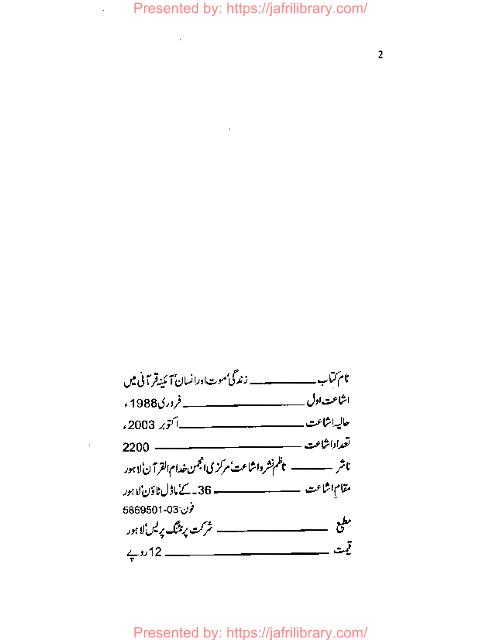 Presented by: https://jafrilibrary.com/
2
نام کتاب ــــــــ زندگی، موت اور انسان آئینۂ قرآنی میں
اشاعت اول ــــــــ فروری 1986ء
حالیہ اشاعت ــــــــ اکتوبر 2003ء
تعداد اشاعت ــــــــ 2200
ناشر ــــــــ ناظم نشر و اشاعت، مرکزی انجمن خدام القرآن، لاہور
مقام اشاعت ــــــــ 36۔ کے، ماڈل ٹاؤن، لاہور
فون: 03-5869501
مطبع ــــــــ شرکت پرنٹنگ پریس، لاہور
قیمت ــــــــ 12 روپے
Presented by: https://jafrilibrary.com/